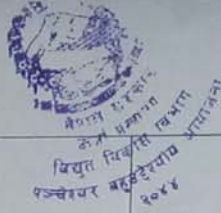 नेपाल सरकार
ऊर्जा मन्त्रालय
विद्युत विकास विभाग
पञ्चेश्वर बहुउद्देश्यीय आयोजना
२०४४